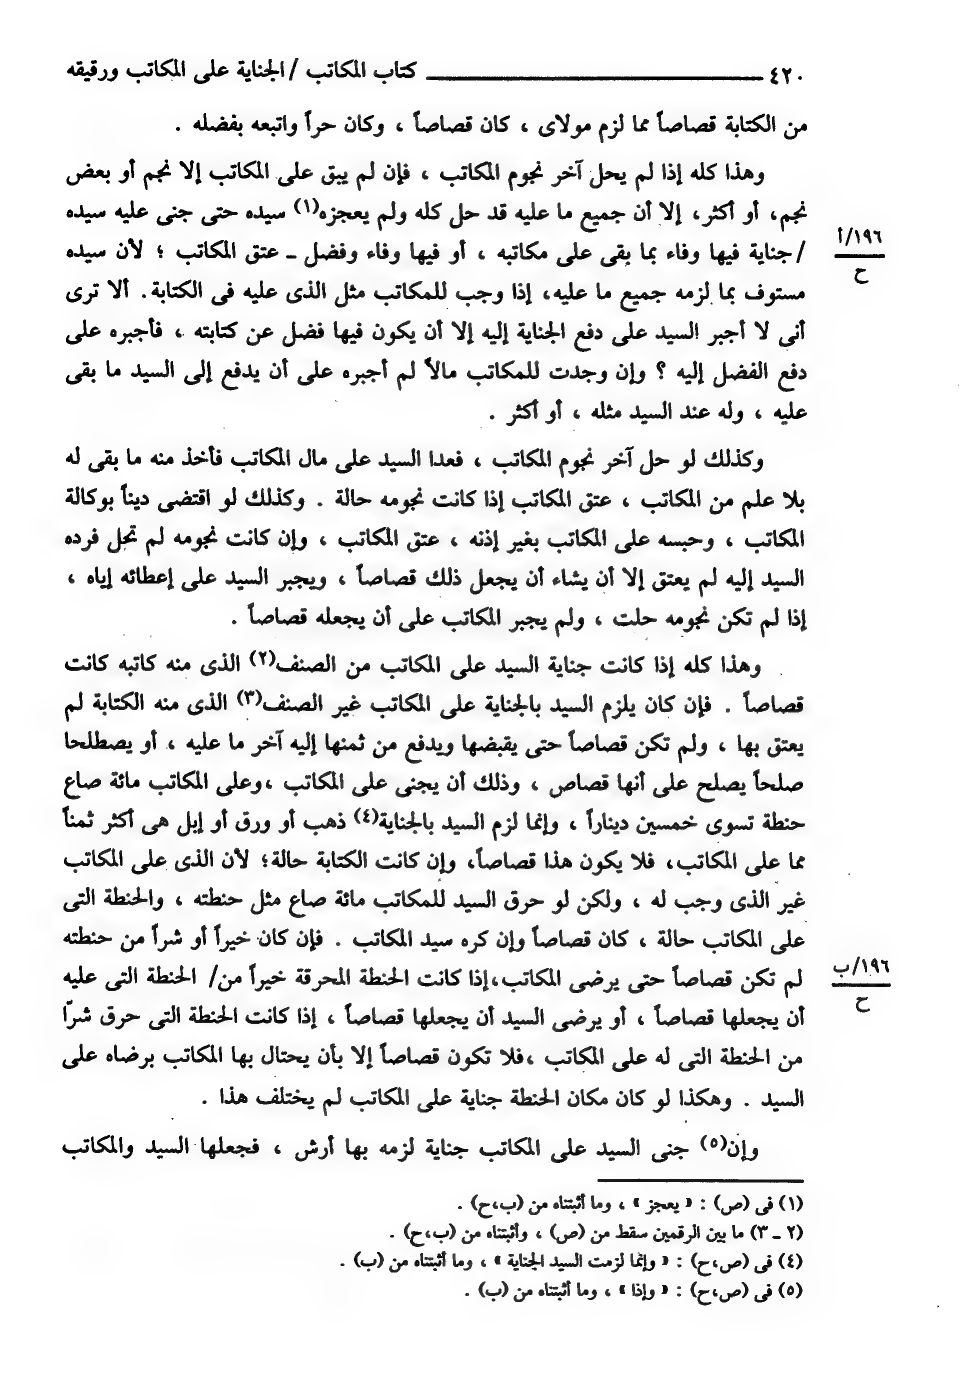 ٤٢٠ كتاب المكاتب / الجناية على المكاتب ورقيقه
من الكتابة قصاصاً مما لزم مولاى ، كان قصاصاً ، وكان حراً واتبعه بفضله .
وهذا كله إذا لم يحل آخر نجوم المكاتب ، فإن لم يبق على المكاتب إلا نجم أو بعض
نجم، أو أكثر، إلا أن جميع ما عليه قد حل كله ولم يعجزه(١) سيده حتى جنى عليه سيده
١٩٦/أ
/جناية فيها وفاء بما بقى على مكاتبه ، أو فيها وفاء وفضل ــ عتق المكاتب ؛ لأن سيده
ح
مستوف بما لزمه جميع ما عليه، إذا وجب للمكاتب مثل الذى عليه فى الكتابة. ألا ترى
أنى لا أجبر السيد على دفع الجناية إليه إلا أن يكون فيها فضل عن كتابته ، فأجبره على
دفع الفضل إليه ؟ وإن وجدت للمكاتب مالاً لم أجبره على أن يدفع إلى السيد ما بقى
عليه ، وله عند السيد مثله ، أو أكثر .
وكذلك لو حل آخر نجوم المكاتب ، فعدا السيد على مال المكاتب فأخذ منه ما بقى له
بلا علم من المكاتب ، عتق المكاتب إذا كانت نجومه حالة . وكذلك لو اقتضى ديناً بوكالة
المكاتب ، وحبسه على المكاتب بغير إذنه ، عتق المكاتب ، وإن كانت نجومه لم تحل فرده
السيد إليه لم يعتق إلا أن يشاء أن يجعل ذلك قصاصاً ، ويجبر السيد على إعطائه إياه ،
إذا لم تكن نجومه حلت ، ولم يجبر المكاتب على أن يجعله قصاصاً .
وهذا كله إذا كانت جناية السيد على المكاتب من الصنف(٢) الذى منه كاتبه كانت
قصاصاً . فإن كان يلزم السيد بالجناية على المكاتب غير الصنف(٣) الذى منه الكتابة لم
يعتق بها ، ولم تكن قصاصاً حتى يقبضها ويدفع من ثمنها إليه آخر ما عليه ، أو يصطلحا
صلحاً يصلح على أنها قصاص ، وذلك أن يجنى على المكاتب ،وعلى المكاتب مائة صاع
حنطة تسوى خمسين ديناراً ، وإنما لزم السيد بالجناية(٤) ذهب أو ورق أو إبل هى أكثر ثمناً
مما على المكاتب، فلا يكون هذا قصاصاً، وإن كانت الكتابة حالة؛ لأن الذى على المكاتب
غير الذى وجب له ، ولكن لو حرق السيد للمكاتب مائة صاع مثل حنطته ، والحنطة التى
على المكاتب حالة ، كان قصاصاً وإن كره سيد المكاتب . فإن كان خيراً أو شراً من حنطته
١٩٦/ب
لم تكن قصاصاً حتى يرضى المكاتب،إذا كانت الحنطة المحرقة خيراً من/ الحنطة التى عليه
ح
أن يجعلها قصاصاً ، أو يرضى السيد أن يجعلها قصاصاً ، إذا كانت الحنطة التى حرق شرّاً
من الحنطة التى له على المكاتب ،فلا تكون قصاصاً إلا بأن يحتال بها المكاتب برضاه على
السيد . وهكذا لو كان مكان الحنطة جناية على المكاتب لم يختلف هذا .
وإن(٥) جنى السيد على المكاتب جناية لزمه بها أرش ، فجعلها السيد والمكاتب
(١) فى (ص) : « يعجز » ، وما أثبتناه من (ب،ح) .
(٢ ــ ٣) ما بين الرقمين سقط من (ص) ، وأثبتناه من (ب،ح) .
(٤) فى (ص،ح) : « وإنما لزمت السيد الجناية » ، وما أثبتناه من (ب) .
(٥) فى (ص،ح) : « وإذا » ، وما أثبتناه من (ب) .